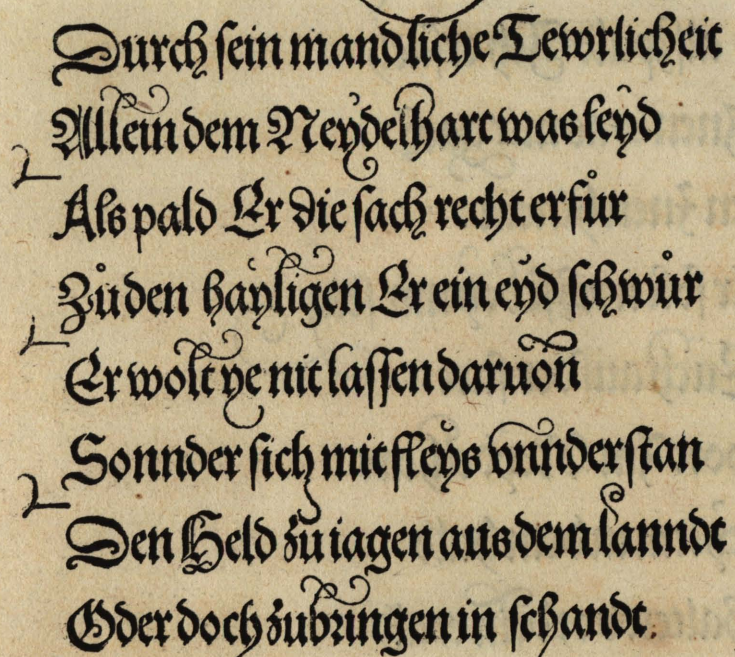 Durch sein mandliche Tewrlicheit
Allein dem Neydelhart was leyd
Als pald Er die sach recht erfůr
Zů den hayligen Er ein eyd schwůr
Er wolt ye nit lassen daruon
Sonnder sich mit fleys vnnderstan
Den Held zu iagen aus dem lanndt
Oder doch zubringen in schandt.